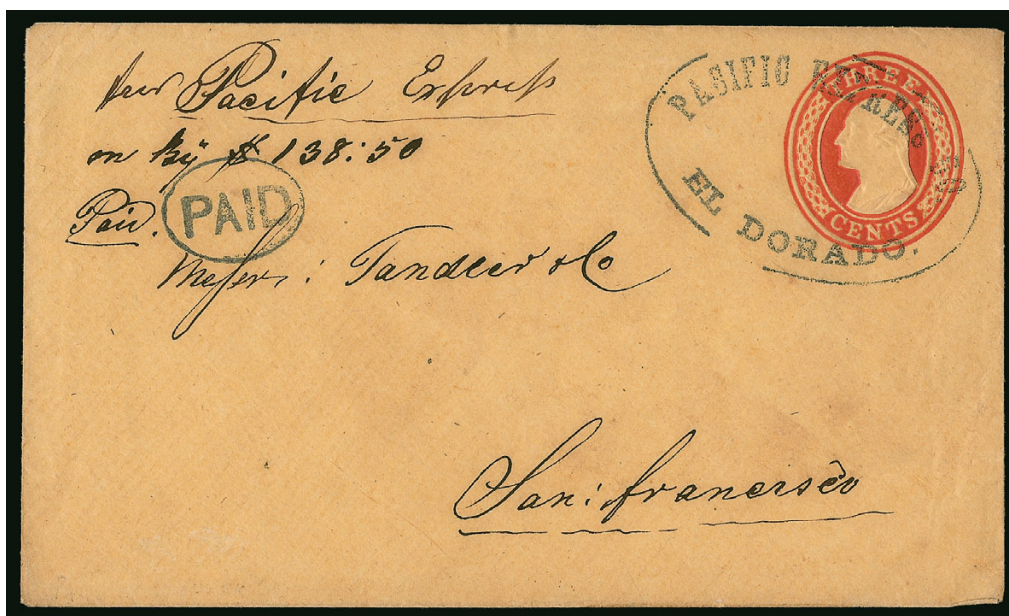 per Pacific Express
on By $ 138:50
Paid.
PAID
Messrs: Tandler & Co
San: francisco
PACIFIC EXPRESS CO.
EL DORADO.
THREE
CENTS